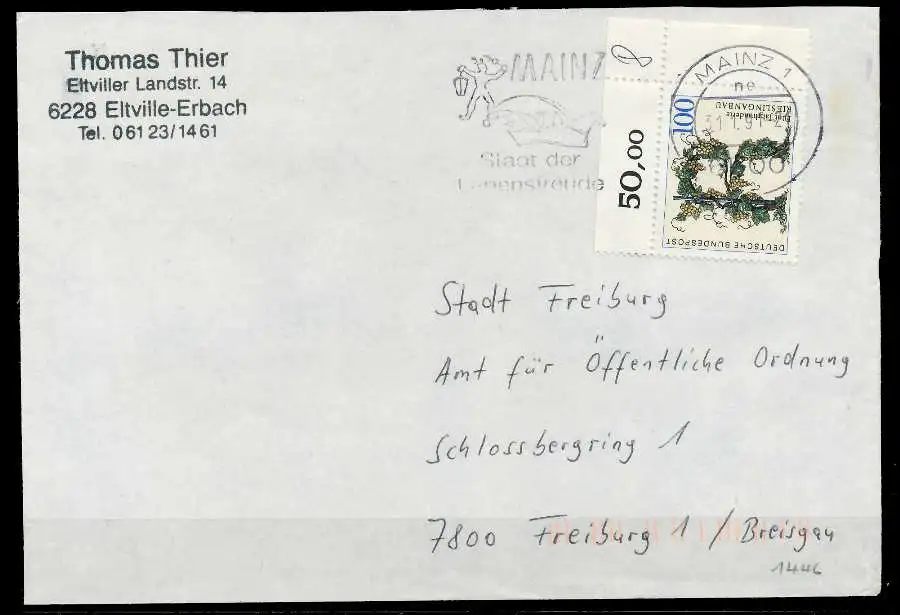 Thomas Thier
Eltviller Landstr. 14
6228 Eltville-Erbach
Tel. 0 61 23/14 61
MAINZ
Stadt der
Lebensfreude
MAINZ 1
ne
50,00
8
100
Fünf Jahrhunderte
RIESLINGANBAU
DEUTSCHE BUNDESPOST
Stadt Freiburg
Amt für Öffentliche Ordnung
Schlossbergring 1
7800 Freiburg 1 / Breisgau
1446